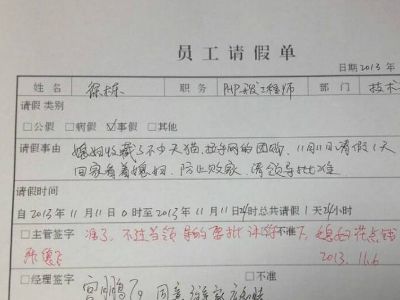 员工请假单
日期2013年
姓名 徐栋 职务 PHP工程师 部门 技术
请假类别
□公假 □病假 ☑事假 □其他
请假事由 媳妇收藏了不少天猫、拉手网的团购,11月11日请假1天
回家看着媳妇,防止败家,请领导批准
请假时间
自2013年11月11日0时至2013年11月11日24时总共请假1天24小时
□主管签字 准了,不过当领导的要批评 不准 下,媳妇花点钱
2013.11.6
□经理签字 宫鹏 同意 □不准